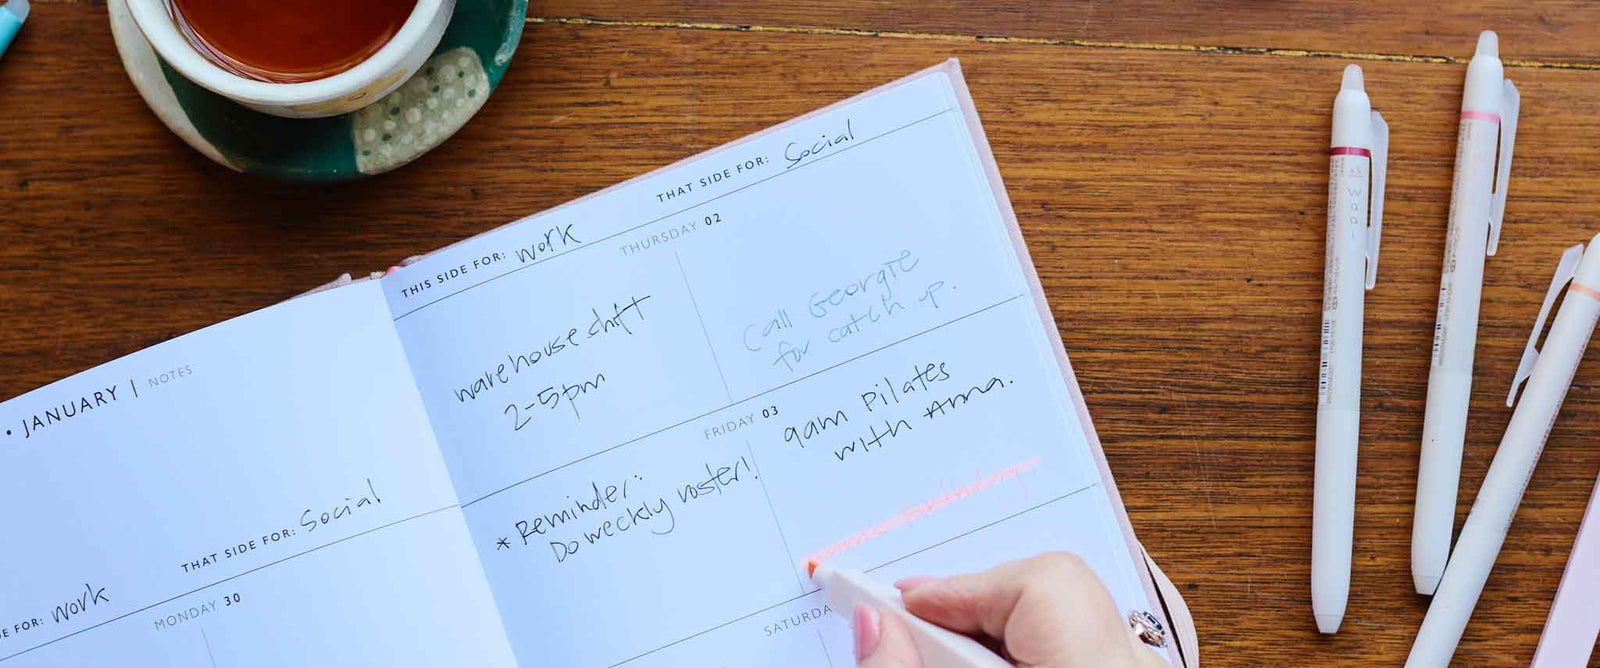 • JANUARY | NOTES
THAT SIDE FOR: Social
E FOR: work
MONDAY 30
THIS SIDE FOR: work
THAT SIDE FOR: Social
THURSDAY 02
warehouse shift
2-5pm
Call Georgie
for catch up.
FRIDAY 03
* Reminder:
Do weekly roster!
9am Pilates
with Anna.
SATURDA